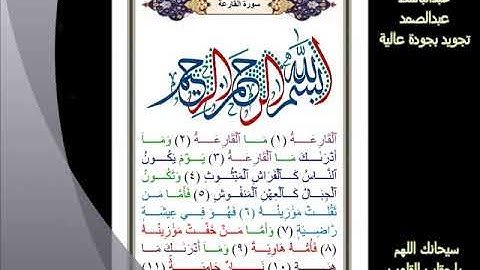 سورة القارعة
عبدالباسط
عبدالصمد
تجويد بجودة عالية
بسم الله الرحمن الرحيم
ٱلْقَارِعَةُ (١) مَا ٱلْقَارِعَةُ (٢) وَمَآ
أَدْرَىٰكَ مَا ٱلْقَارِعَةُ (٣) يَوْمَ يَكُونُ
ٱلنَّاسُ كَٱلْفَرَاشِ ٱلْمَبْثُوثِ (٤) وَتَكُونُ
ٱلْجِبَالُ كَٱلْعِهْنِ ٱلْمَنفُوشِ (٥) فَأَمَّا مَن
ثَقُلَتْ مَوَٰزِينُهُۥ (٦) فَهُوَ فِى عِيشَةٍ
رَّاضِيَةٍ (٧) وَأَمَّا مَنْ خَفَّتْ مَوَٰزِينُهُۥ
(٨) فَأُمُّهُۥ هَاوِيَةٌ (٩) وَمَآ أَدْرَىٰكَ مَا
هِيَهْ (١٠) نَارٌ حَامِيَةٌۢ (١١)
سبحانك اللهم
يا مقلب القلوب